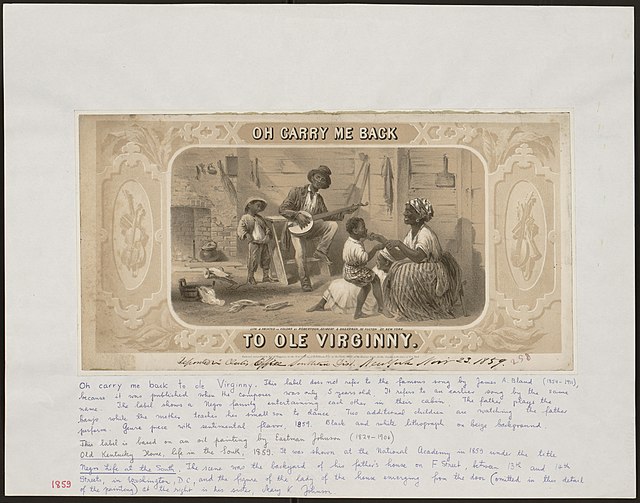 OH CARRY ME BACK
TO OLE VIRGINNY.
Deposited in Clerks Office Southern Dist. New York Nov 23. 1859 258
Oh carry me back to ole Virginny. This label does not refer to the famous song by James A. Bland (1854-1911),
because it was published when the composer was only 5 years old. It refers to an earlier song by the same
name. The label shows a Negro family entertaining each other in their cabin. The father plays the
banjo while the mother teaches her small son to dance. Two additional children are watching the father
perform. Genre piece with sentimental flavor, 1859. Black and white lithograph on beige background.
This label is based on an oil painting by Eastman Johnson (1824-1906)
Old Kentucky Home, life in the South, 1859. It was shown at the National Academy in 1859 under the title
Negro Life at the South. The scene was the backyard of his father's house on F Street, between 13th and 14th
Streets, in Washington D.C., and the figure of the lady of the house emerging from the door (omitted in this detail
of the painting) at the right is his sister, Mary K. Johnson
1859